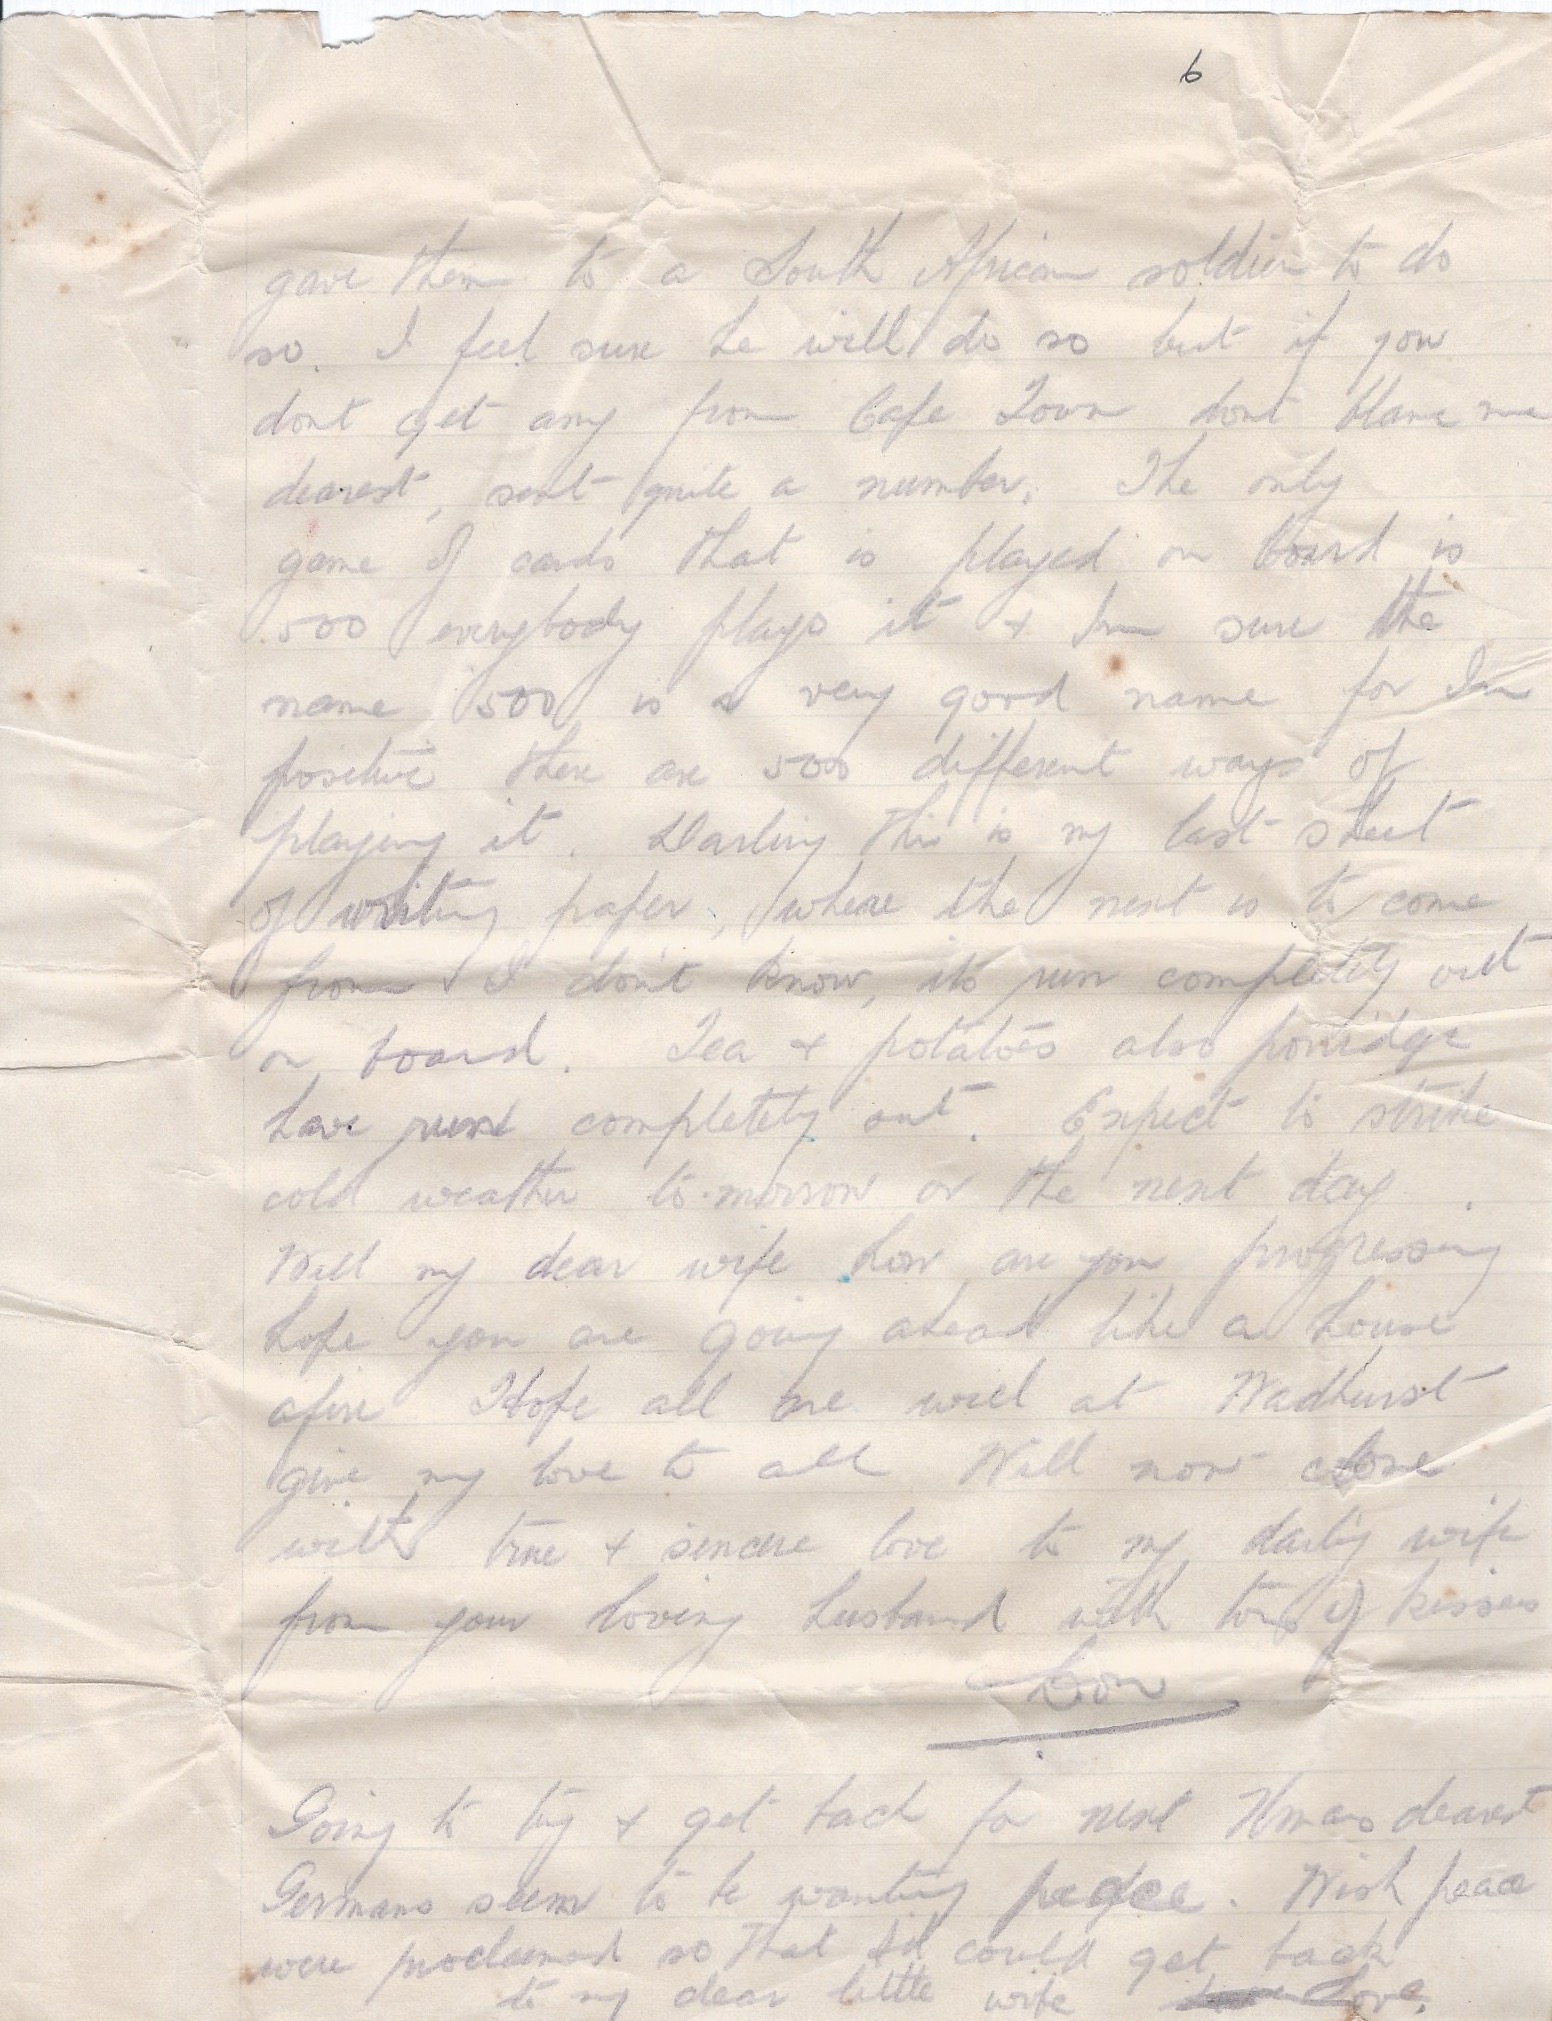 6
gave them to a South African soldier to do
so. I feel sure he will do so but if you
dont get any from Cape Town dont blame me
dearest, sent quite a number. The only
game of cards that is played on board is
500 everybody plays it + Im sure the
name 500 is a very good name for Im
positive there are 500 different ways of
playing it. Darling this is my last sheet
of writing paper, where the next is to come
from I don't know, its run completely out
on board. Tea + potatoes also porridge
have run completely out. Expect to strike
cold weather to-morrow or the next day.
Well my dear wife how are you progressing
hope you are going ahead like a house
afire Hope all are well at Wadhurst
give my love to all Will now close
with true + sincere love to my darling wife
from your loving husband with tons of kisses
Don
Going to try + get back for next Xmas dearest
Germans seem to be wanting peace. Wish peace
were proclaimed so that I could get back
to my dear little wife Love.